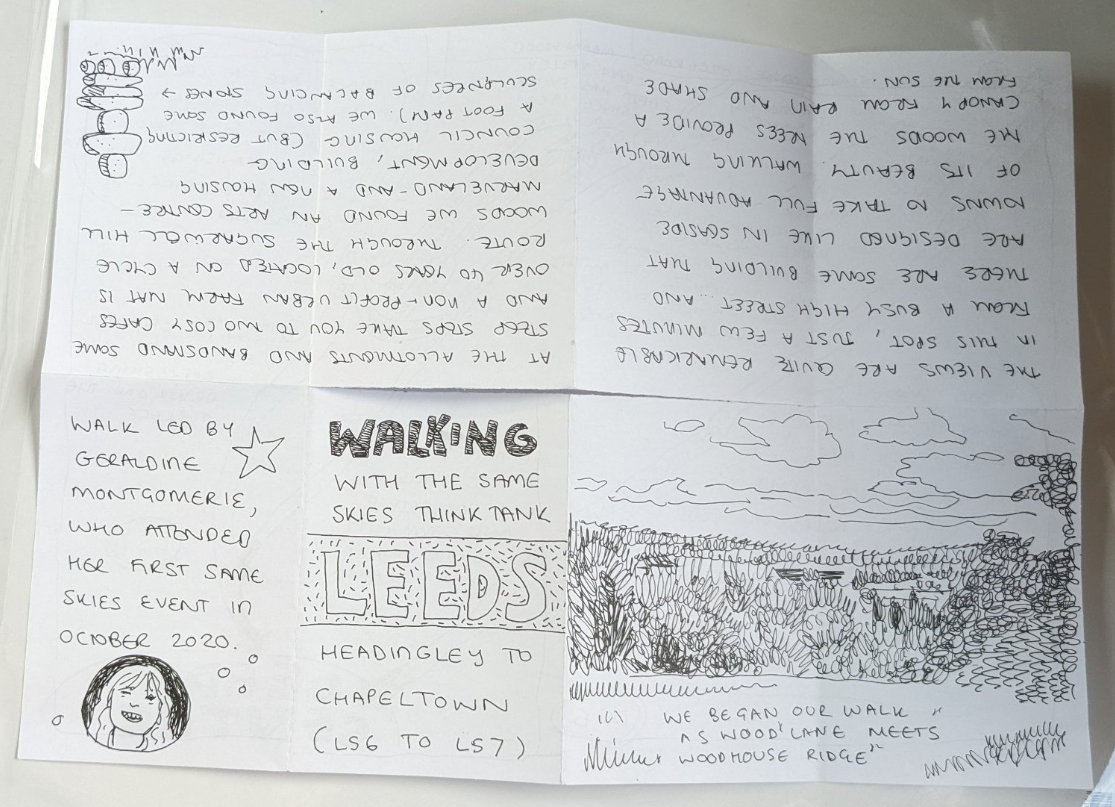 WALKING
WITH THE SAME
SKIES THINK TANK
LEEDS
HEADINGLEY TO
CHAPELTOWN
(LS6 TO LS7)
WE BEGAN OUR WALK "
AS WOOD LANE MEETS
WOODHOUSE RIDGE"
THE VIEWS ARE QUITE REMARKABLE
IN THIS SPOT, JUST A FEW MINUTES
FROM A BUSY HIGH STREET... AND
THERE ARE SOME BUILDING THAT
ARE DESIGNED LIKE IN SEASIDE
TOWNS TO TAKE FULL ADVANTAGE
OF ITS BEAUTY. WALKING THROUGH
THE WOODS THE TREES PROVIDE A
CANOPY FROM RAIN AND SHADE
FROM THE SUN.
AT THE ALLOTMENTS AND BANDSTAND SOME
STEEP STEPS TAKE YOU TO TWO COSY CAFES
AND A NON-PROFIT URBAN FARM THAT IS
OVER 40 YEARS OLD, LOCATED ON A CYCLE
ROUTE. THROUGH THE SUGARWELL HILL
WOODS WE FOUND AN ARTS CENTRE -
MARVELAND - AND A NEW HOUSING
DEVELOPMENT, BUILDING
COUNCIL HOUSING (BUT RESTRICTING
A FOOTPATH). WE ALSO FOUND SOME
SCULPTURES OF BALANCING STONES →
WALK LED BY
GERALDINE
MONTGOMERIE,
WHO ATTENDED
HER FIRST SAME
SKIES EVENT IN
OCTOBER 2020.